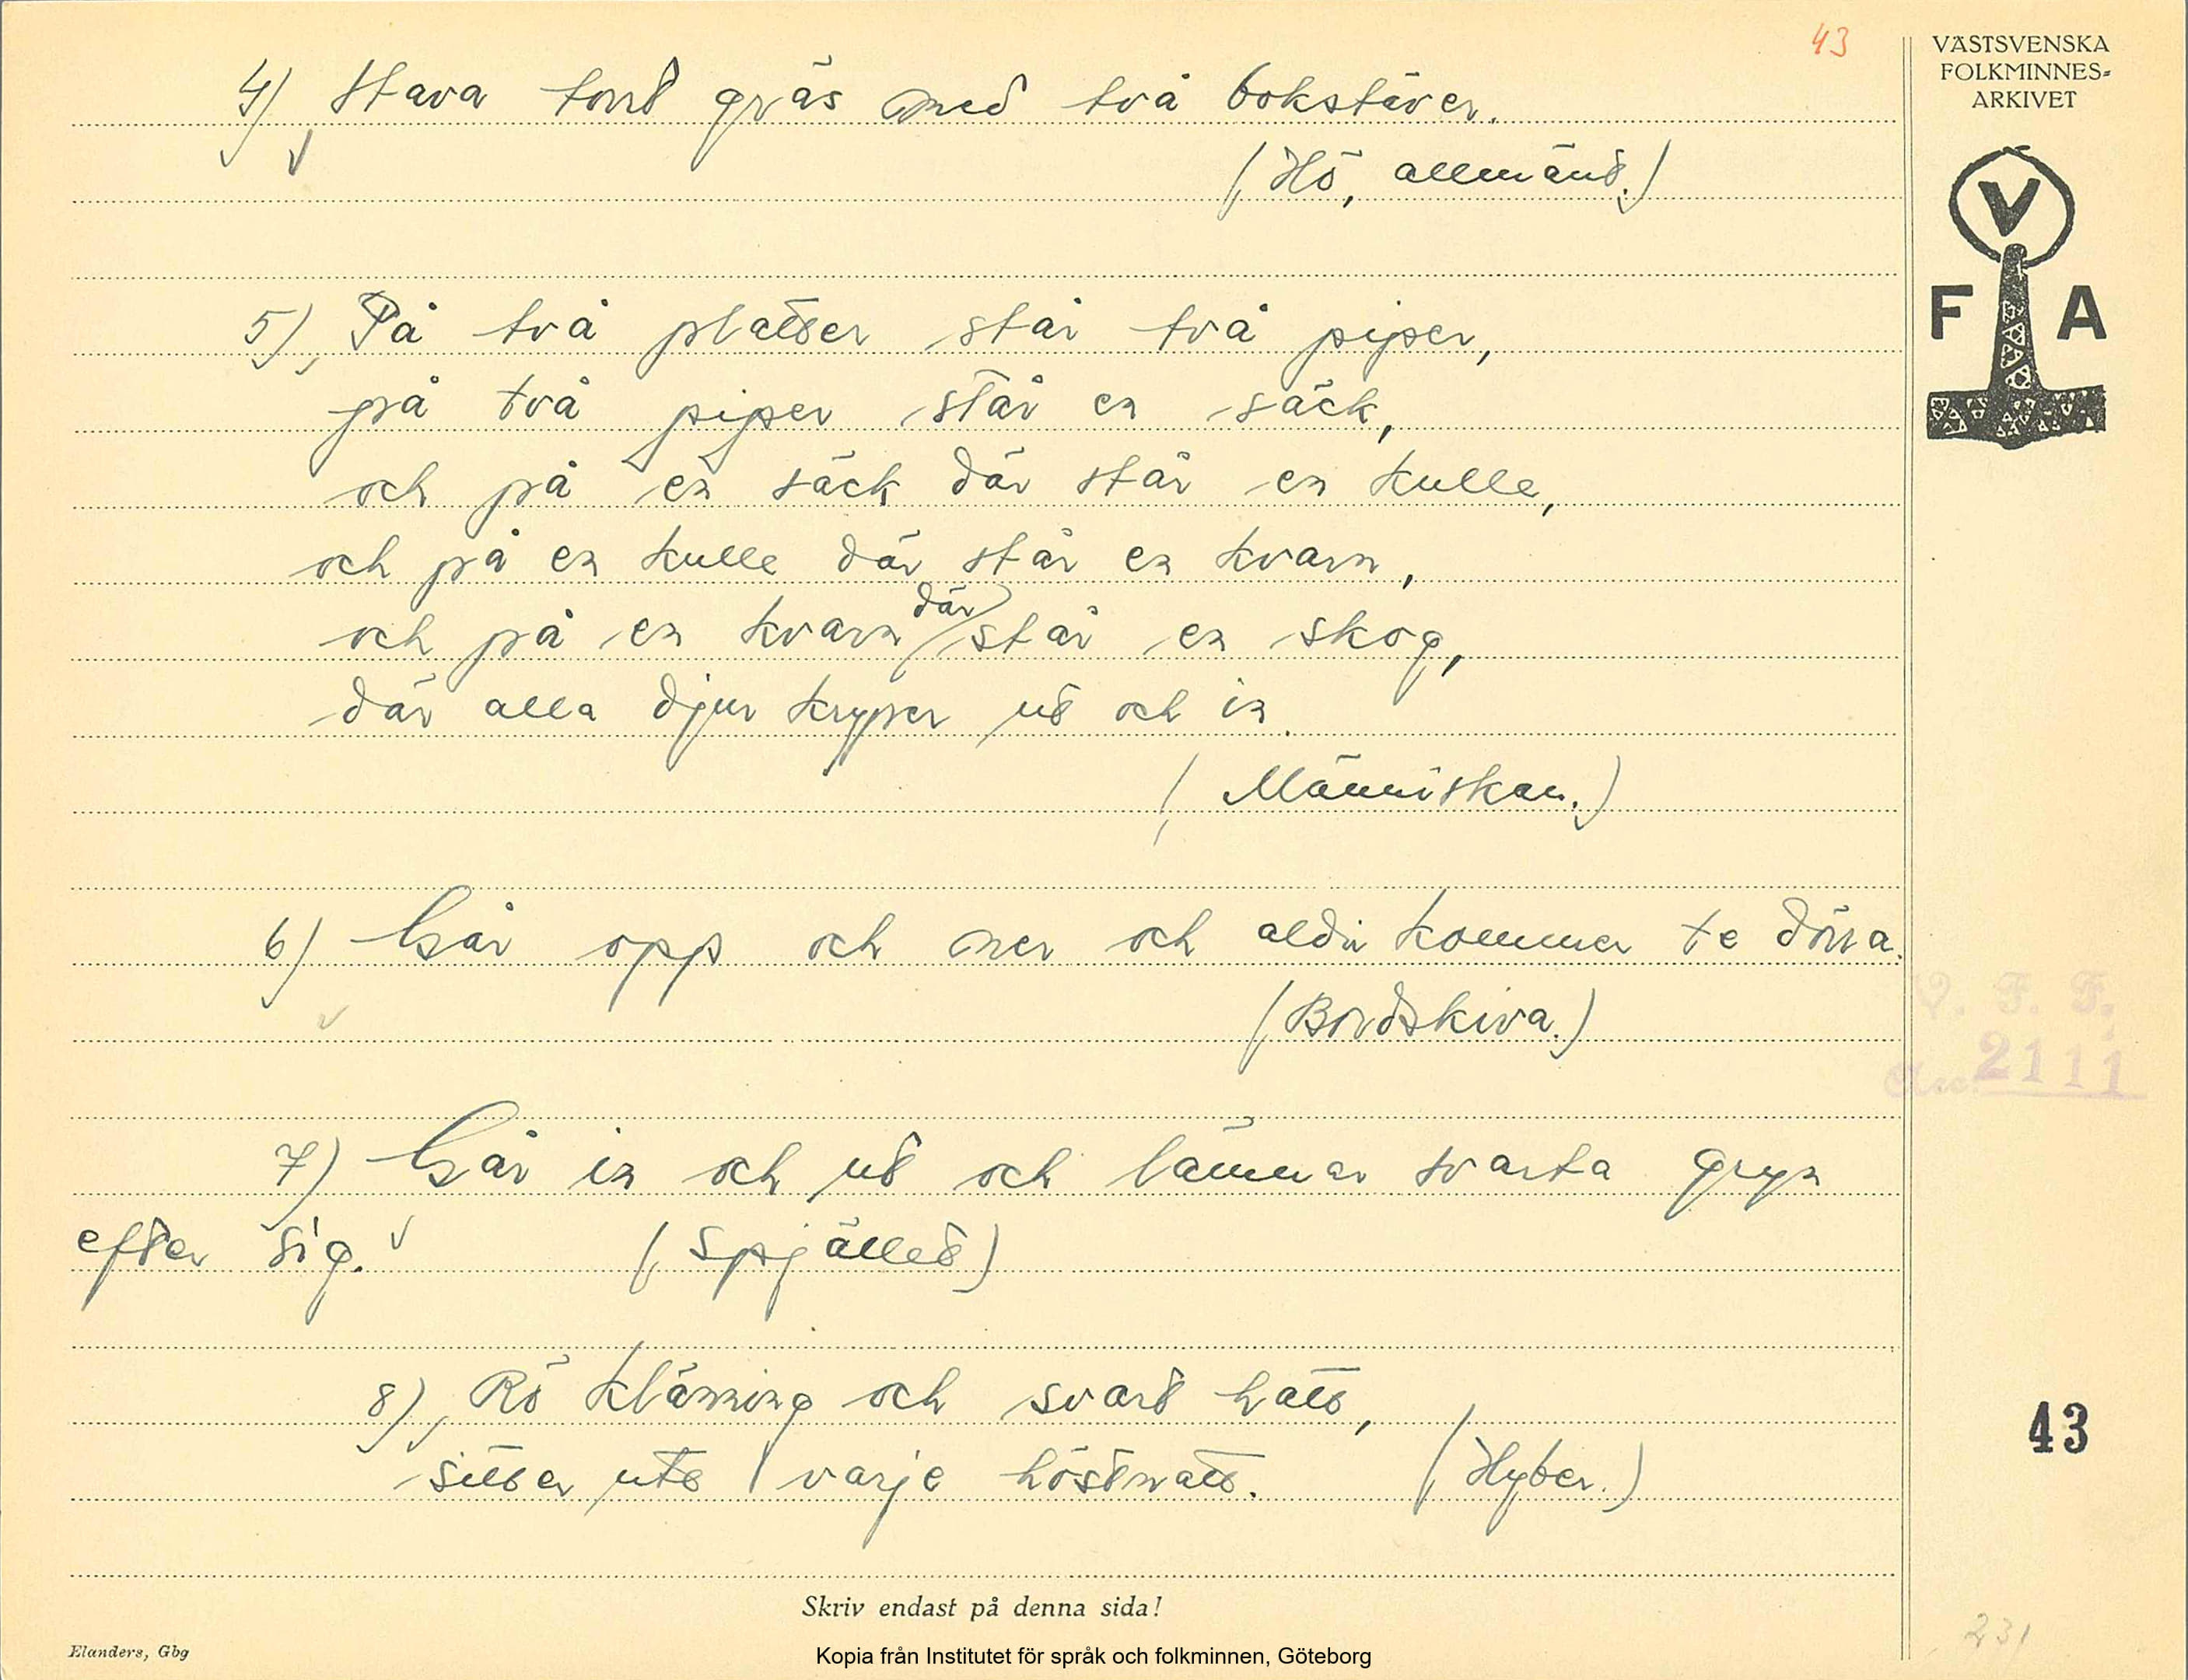 43
VÄSTSVENSKA
FOLKMINNES=
ARKIVET
V
F A
4) Stava torrt gräs med två bokstäver.
(Hö, allmänt.)
5) På två platser står två piper,
på två piper står en säck,
och på en säck där står en kulle,
och på en kulle där står en kvarn,
och på en kvarn där står en skog,
där alla djur kryper ut och in.
(Människan.)
6) Går opp och ner och aldri kommer te dörra.
(Bordskiva.)
V. F. F.
Acc. 2111
7) Går in och ut och lämnar svarta gryn
efter sig. (Spjället)
8) Rö klänning och svart hatt,
sitter ute varje höstnatt. (Hyber.)
43
Skriv endast på denna sida!
231
Elanders, Gbg
Kopia från Institutet för språk och folkminnen, Göteborg